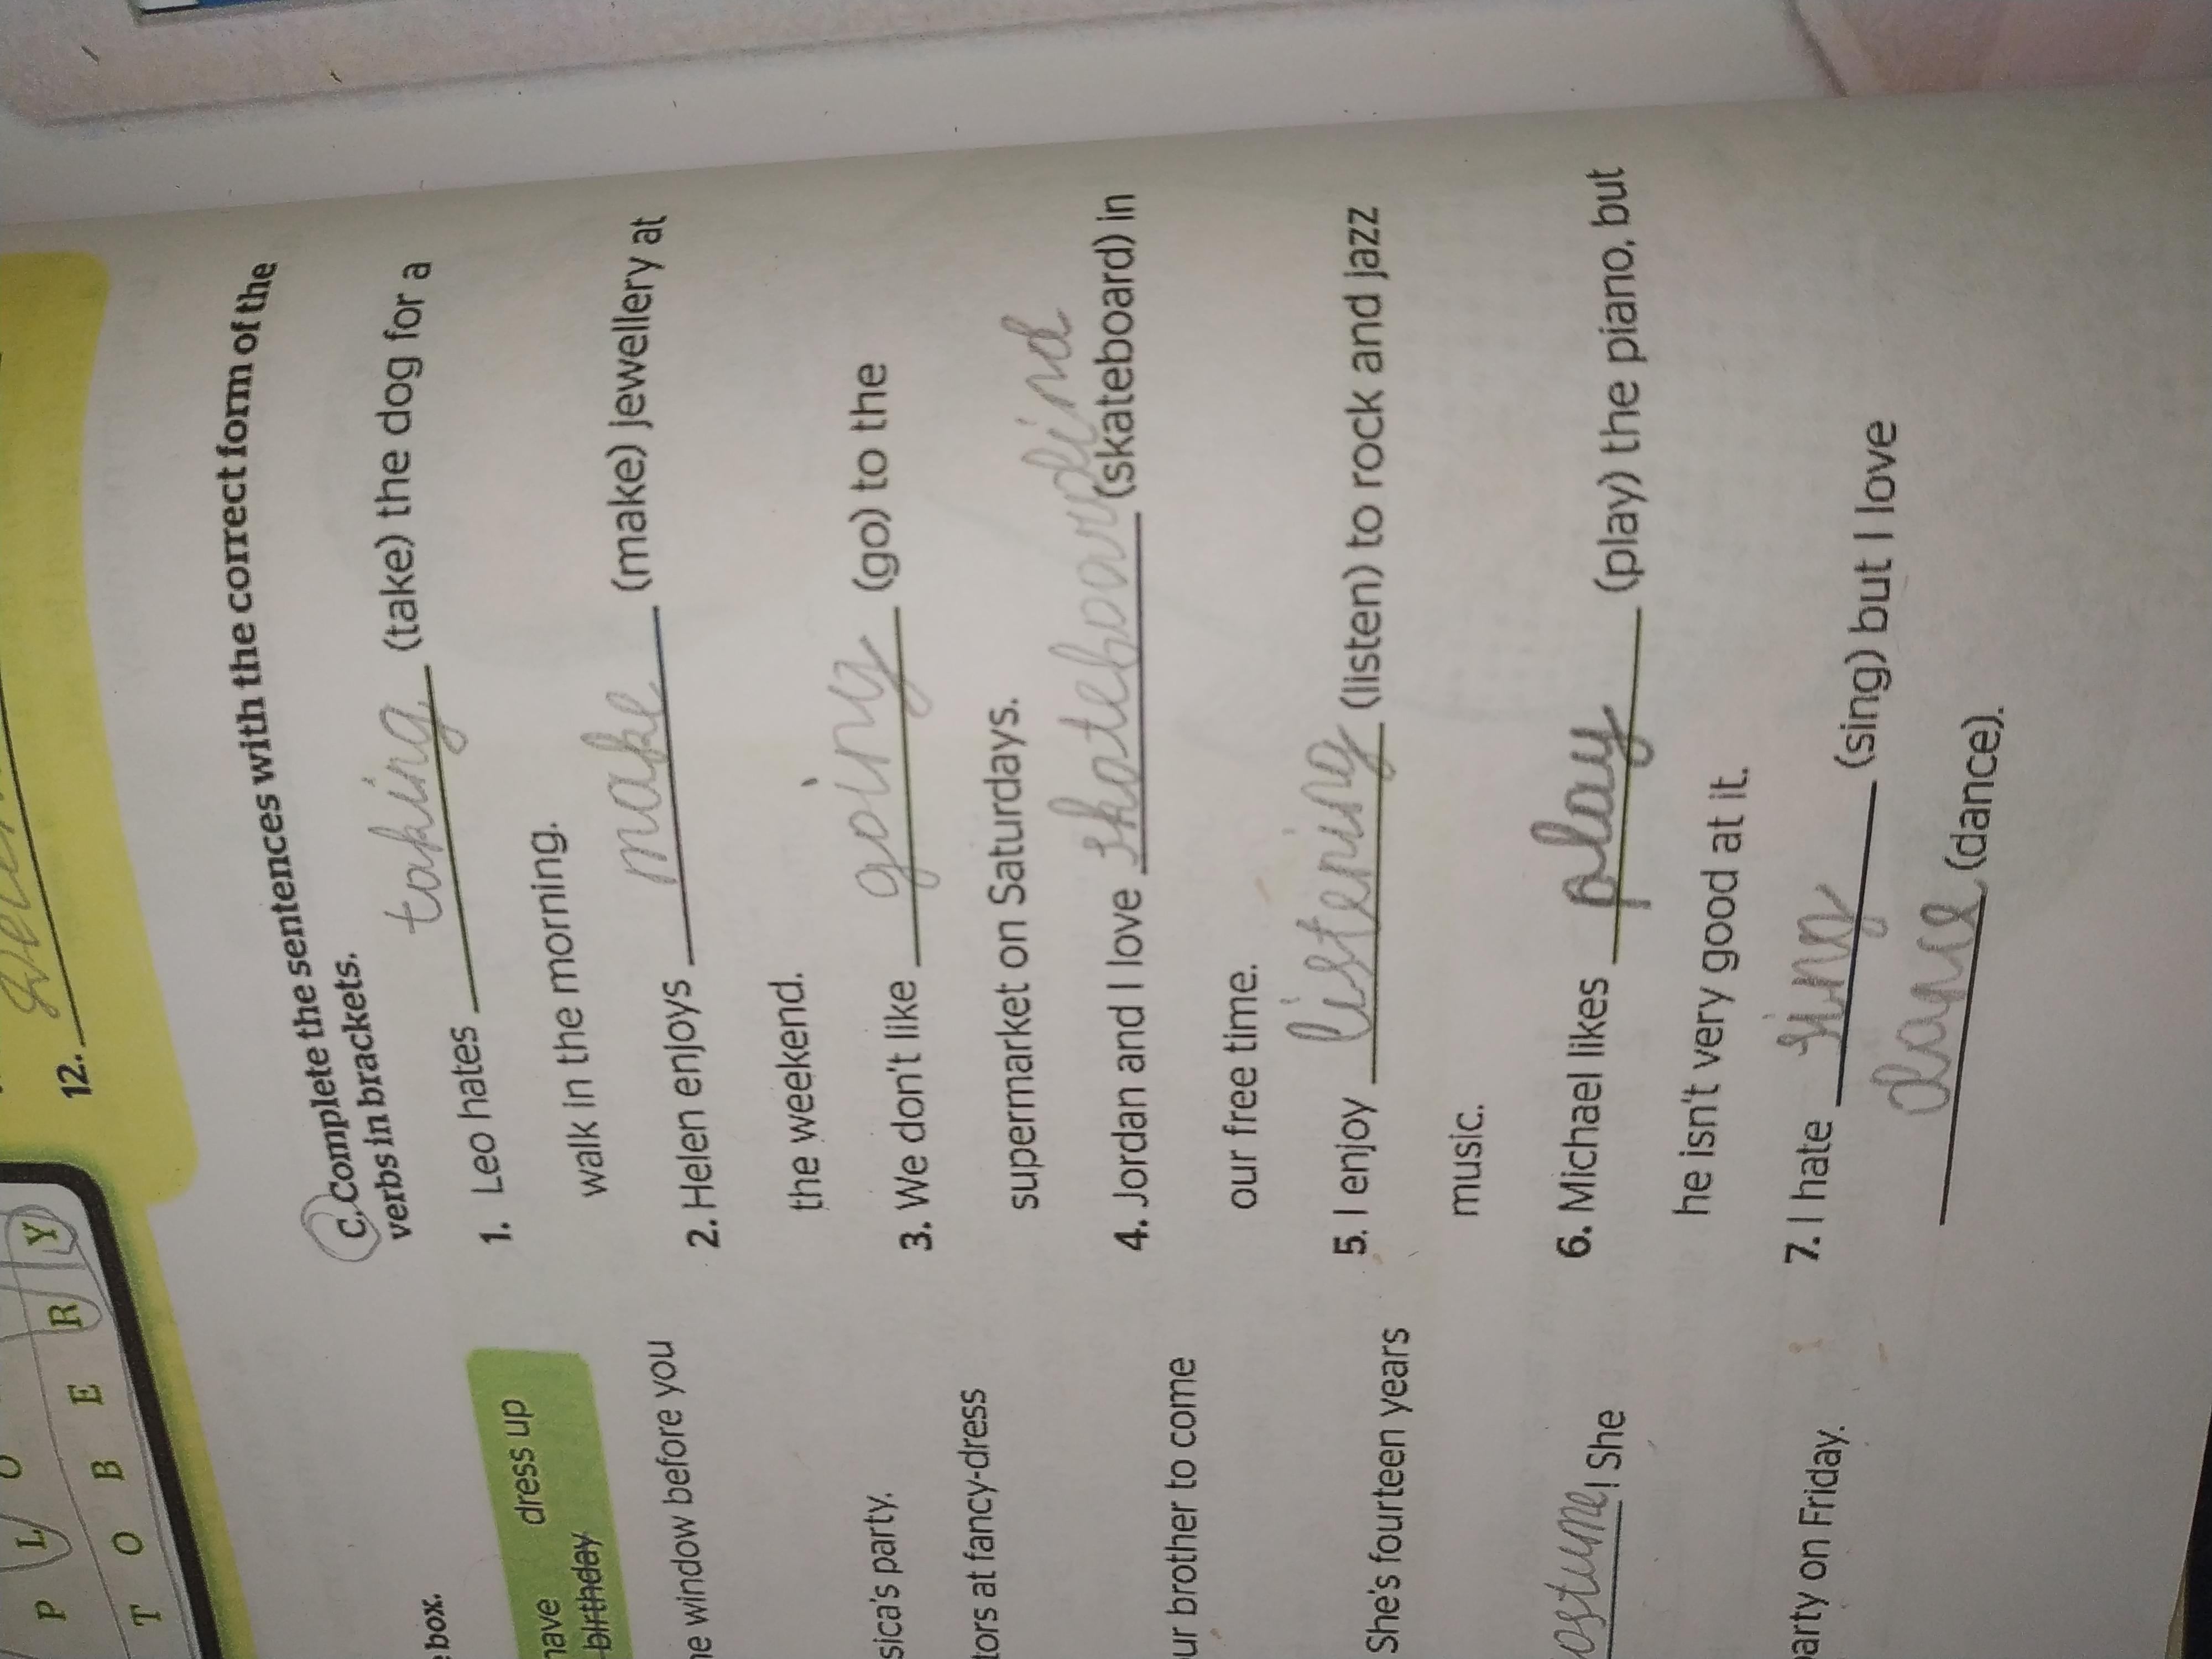 P L O
R Y
T O B E
12.
box.
dress up
birthday
window before you
party.
at fancy-dress
brother to come
She's fourteen years
! She
on Friday.
C. Complete the sentences with the correct form of the
verbs in brackets.
1. Leo hates taking (take) the dog for a
walk in the morning.
2. Helen enjoys make (make) jewellery at
the weekend.
3. We don't like going (go) to the
supermarket on Saturdays.
4. Jordan and I love skateboardind (skateboard) in
our free time.
5. I enjoy listening (listen) to rock and jazz
music.
6. Michael likes play (play) the piano, but
he isn't very good at it.
7. I hate sing (sing) but I love
dance (dance).